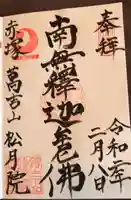 奉拝
令和二年
二月八日
南無釋迦牟尼佛
赤塚 萬吉山 松月院